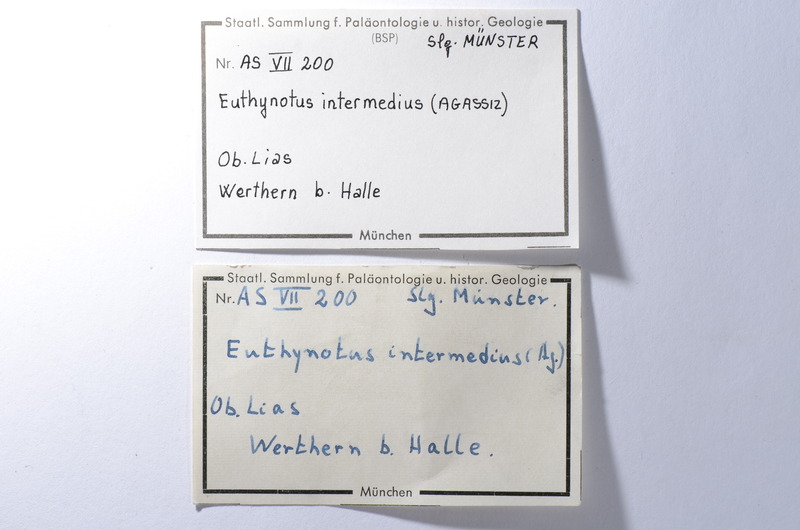 Staatl. Sammlung f. Paläontologie u. histor. Geologie
(BSP) Slg. MÜNSTER
Nr. AS VII 200
Euthynotus intermedius (AGASSIZ)
Ob. Lias
Werthern b. Halle
München
Staatl. Sammlung f. Paläontologie u. histor. Geologie
Nr. AS VII 200 Slg. Münster.
Euthynotus intermedius (Ag.)
Ob. Lias
Werthern b. Halle.
München